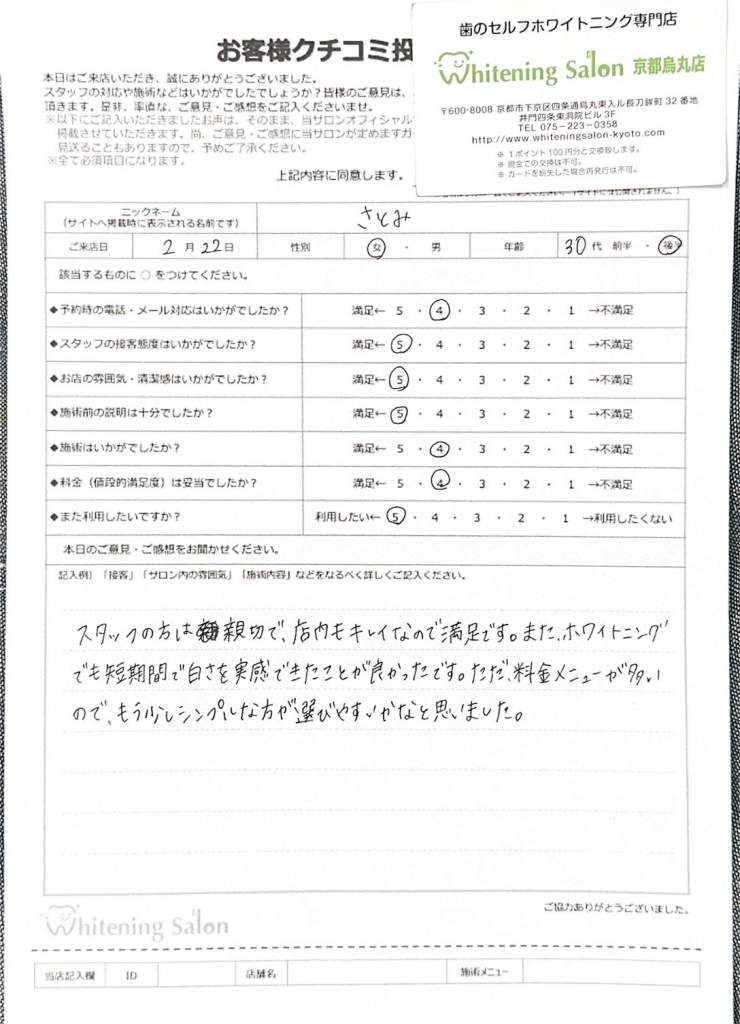 お客様クチコミ投
本日はご来店いただき、誠にありがとうございました。
スタッフの対応や施術などはいかがでしたでしょうか？皆様のご意見は、
頂きます。是非、率直な、ご意見・ご感想をご記入くださいませ。
※以下にご記入いただきましたお声は、そのまま、当サロンオフィシャル
掲載させていただきます。尚、ご意見・ご感想に当サロンが定めますガ
見送ることもありますので、予めご了承ください。
※全て必須項目になります。
上記内容に同意します。
歯のセルフホワイトニング専門店
Whitening Salon 京都烏丸店
〒600-8008 京都市下京区四条通烏丸東入ル長刀鉾町 32 番地
井門四条東洞院ビル 3F
TEL 075-223-0358
http://www.whiteningsalon-kyoto.com
※ 1ポイント100円分と交換致します。
※ 現金での交換は不可。
※ カードを紛失した場合再発行は不可。
ニックネーム
（サイトへ掲載時に表示される名前です）
さとみ
ご来店日 2 月 22 日 性別 女 ・ 男 年齢 30 代 前半 ・ 後半
該当するものに ○ をつけてください。
◆予約時の電話・メール対応はいかがでしたか？ 満足← 5 ・ 4 ・ 3 ・ 2 ・ 1 →不満足
◆スタッフの接客態度はいかがでしたか？ 満足← 5 ・ 4 ・ 3 ・ 2 ・ 1 →不満足
◆お店の雰囲気・清潔感はいかがでしたか？ 満足← 5 ・ 4 ・ 3 ・ 2 ・ 1 →不満足
◆施術前の説明は十分でしたか？ 満足← 5 ・ 4 ・ 3 ・ 2 ・ 1 →不満足
◆施術はいかがでしたか？ 満足← 5 ・ 4 ・ 3 ・ 2 ・ 1 →不満足
◆料金（値段的満足度）は妥当でしたか？ 満足← 5 ・ 4 ・ 3 ・ 2 ・ 1 →不満足
◆また利用したいですか？ 利用したい← 5 ・ 4 ・ 3 ・ 2 ・ 1 →利用したくない
本日のご意見・ご感想をお聞かせください。
記入例）「接客」「サロン内の雰囲気」「施術内容」などをなるべく詳しくご記入ください。
スタッフの方は親切で、店内もキレイなので満足です。また、ホワイトニング
でも短期間で白さを実感できたことが良かったです。ただ、料金メニューが多い
ので、もう少しシンプルな方が選びやすいかなと思いました。
ご協力ありがとうございました。
Whitening Salon
当店記入欄 ID 店舗名 施術メニュー